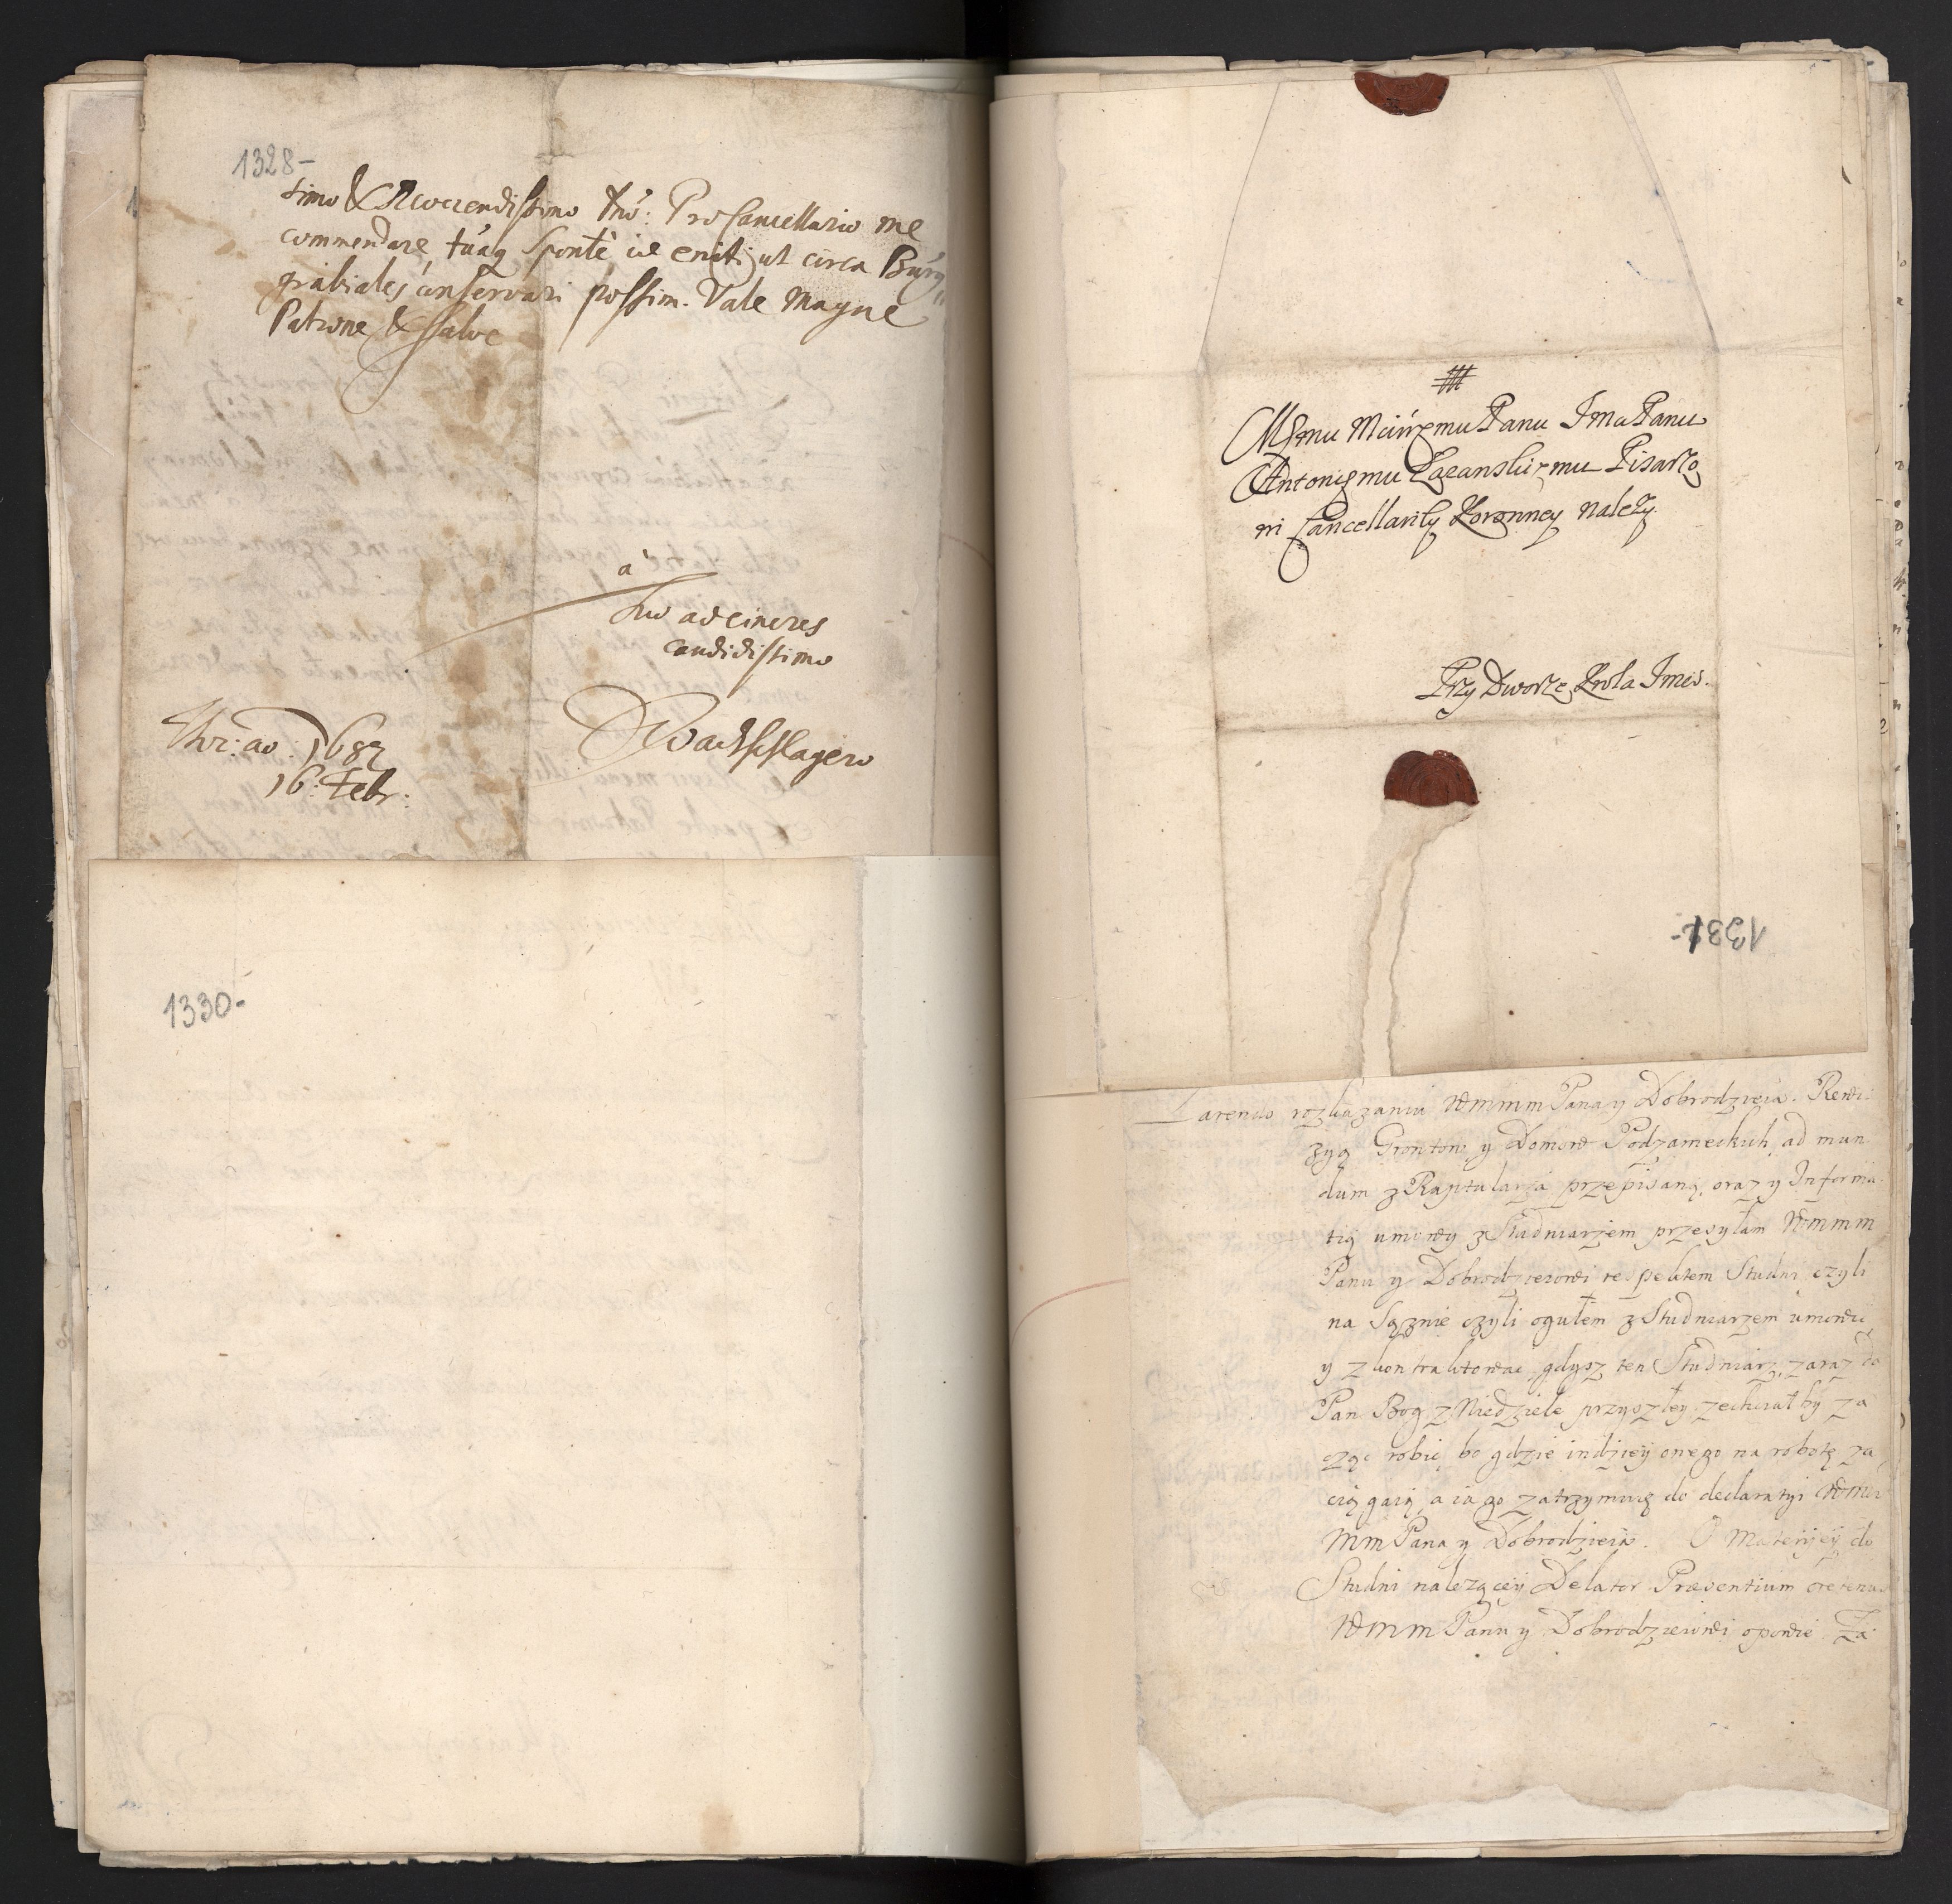 1328-
simo & Reverendissimo Dno: ProCancellario me
commendare, tuaq sponte eniti, ut circa Burg
grabiales conservari possim. Vale Magne
Patrone & salve
à
Tuo ad cineres
candidissimo
Wachschlagero
Thor: ao 1682
16. Febr:
1330-
Mẽmu Mciwẽmu Panu Jmo Panu
Antoniẽmu Pisarzo
wi Cancellariiy Koronney należy.
Przy Dworze Krola Jmci.
1331-
Parendo rozkazaniu WMMM Pana y Dobrodzieia. Rewi
zyą Grontow y Domow Podzameckich, ad mun
dum z Raptularza przepisaną, oraz y Informa
tią umowy z Studniarzem przesyłam WMMM
Panu y Dobrodzieiowi respektem Studni, czyli
na Sążnie czyli ogułem z Studniarzem umowic
y zkontraktowac, gdysz ten Studniarz, zaraz da
Pan Bog z Niedziele przyszłey zechciałby za
cząc robic, bo gdzie indzieÿ onego na robotę za
ciągaią, a ia go zatrzymuię do declaratyi WM
MM Pana y Dobrodzieia. O Materÿeÿ do
Studni nalezącey Delator Præsentium oretenus
WMMM Panu y Dobrodzieiowi opowie. Za